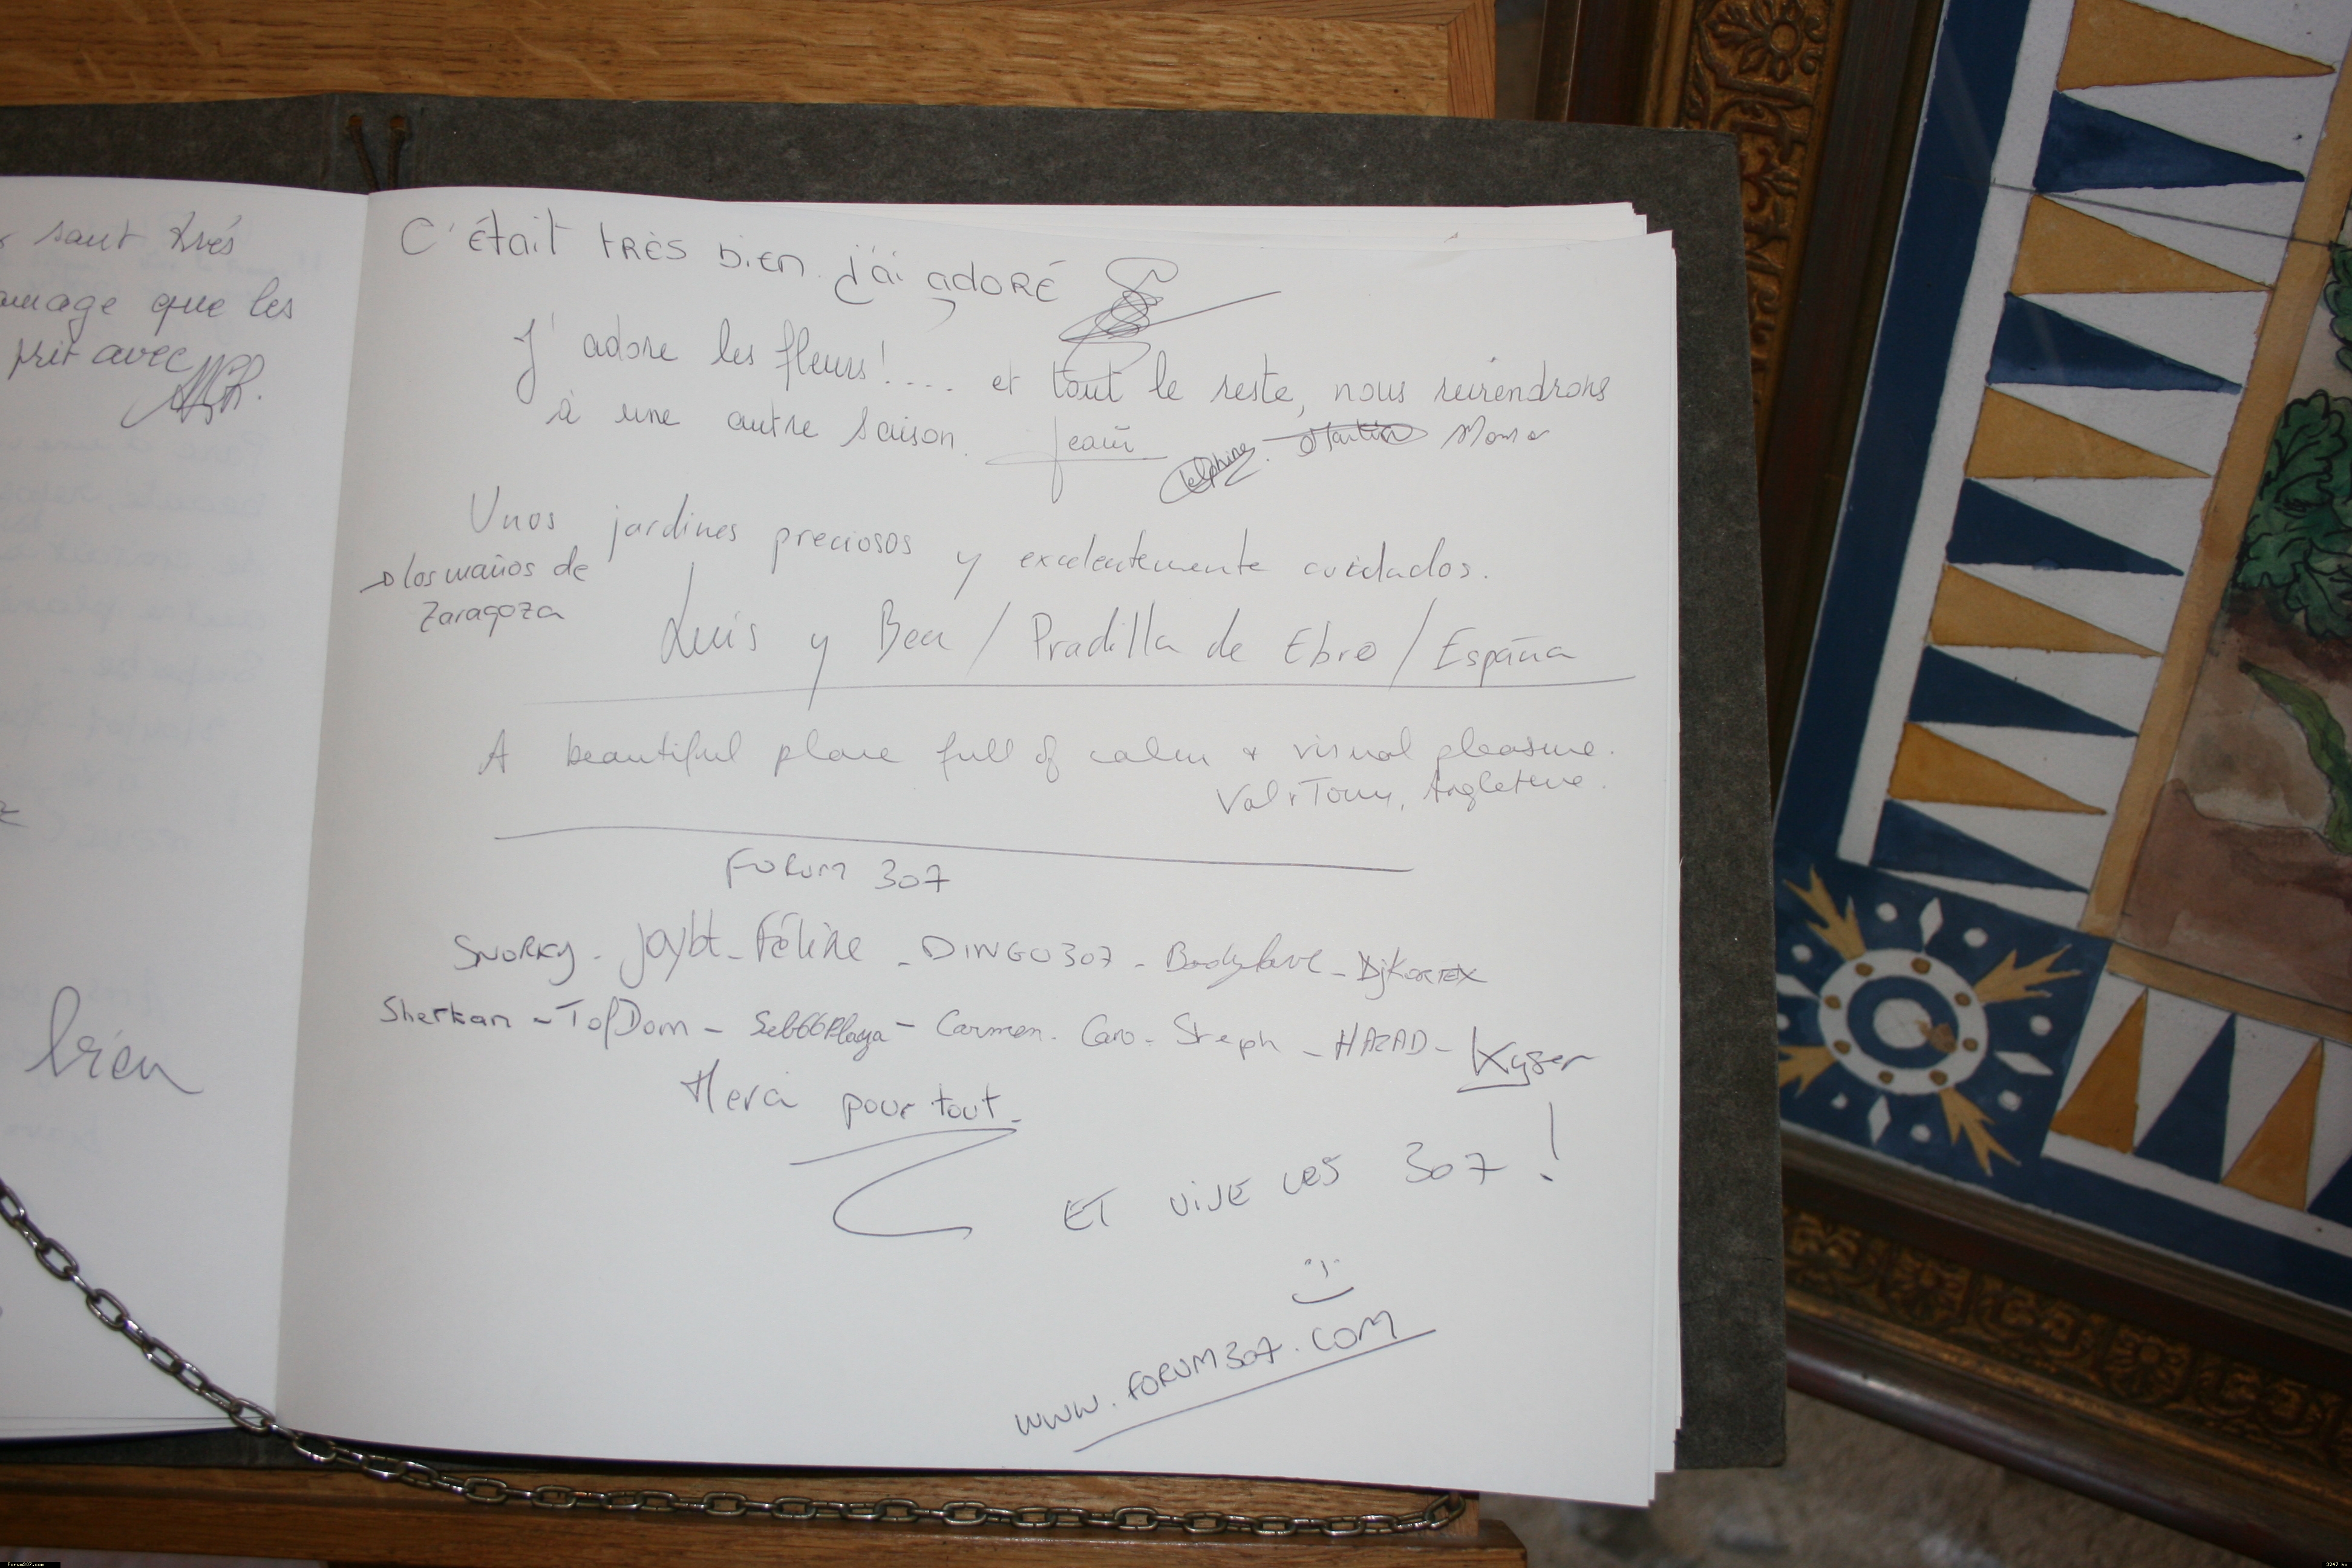 sont très
que les
prit avec
bien
C'était très bien. j'ai adoré
J'adore les fleurs!.... et tout le reste, nous reviendrons
à une autre saison. Delphine. Martin
Unos jardines preciosos y excelentemente cuidados.
→ los maños de
Zaragoza
Luis y Bea / Pradilla de Ebro / España
A beautiful place full of calm & visual pleasure.
Val & Tony, Angleterre.
FORUM 307
SNORKY - Joybt - Féline - DINGO307 - Bodylove - DjKORTEX
Sherkan - TofDom - Seb66Playa - Carmen. Caro - Steph - HAZAD - Kyser
Merci pour tout.
ET VIVE LES 307 !
WWW.FORUM307.COM
Forum307.com